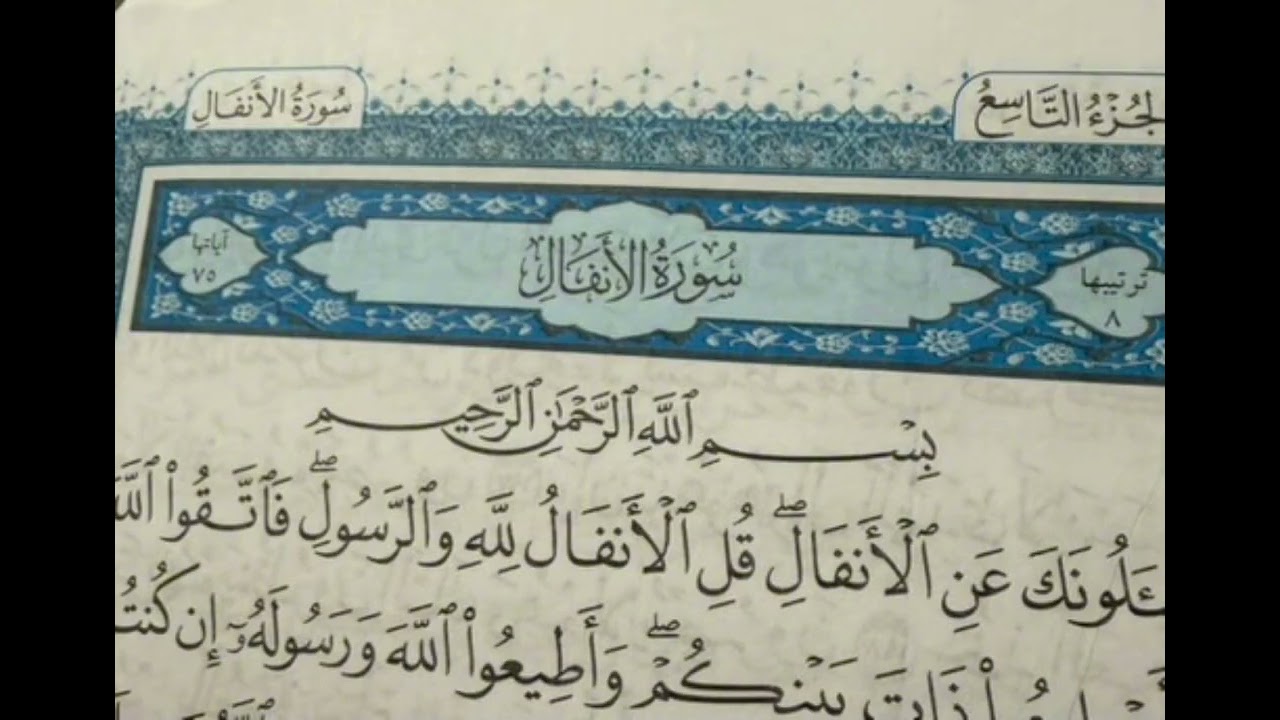 الجُزْءُ التَّاسِعُ
سُورَةُ الأَنفَالِ
ترتيبها
٨
سُورَةُ الأَنفَالِ
آياتها
٧٥
بِسْمِ ٱللَّهِ ٱلرَّحْمَٰنِ ٱلرَّحِيمِ
عَنِ ٱلْأَنفَالِۖ قُلِ ٱلْأَنفَالُ لِلَّهِ وَٱلرَّسُولِۖ فَٱتَّقُوا۟ ٱللَّهَ
ذَاتَ بَيْنِكُمْۖ وَأَطِيعُوا۟ ٱللَّهَ وَرَسُولَهُۥٓ إِن